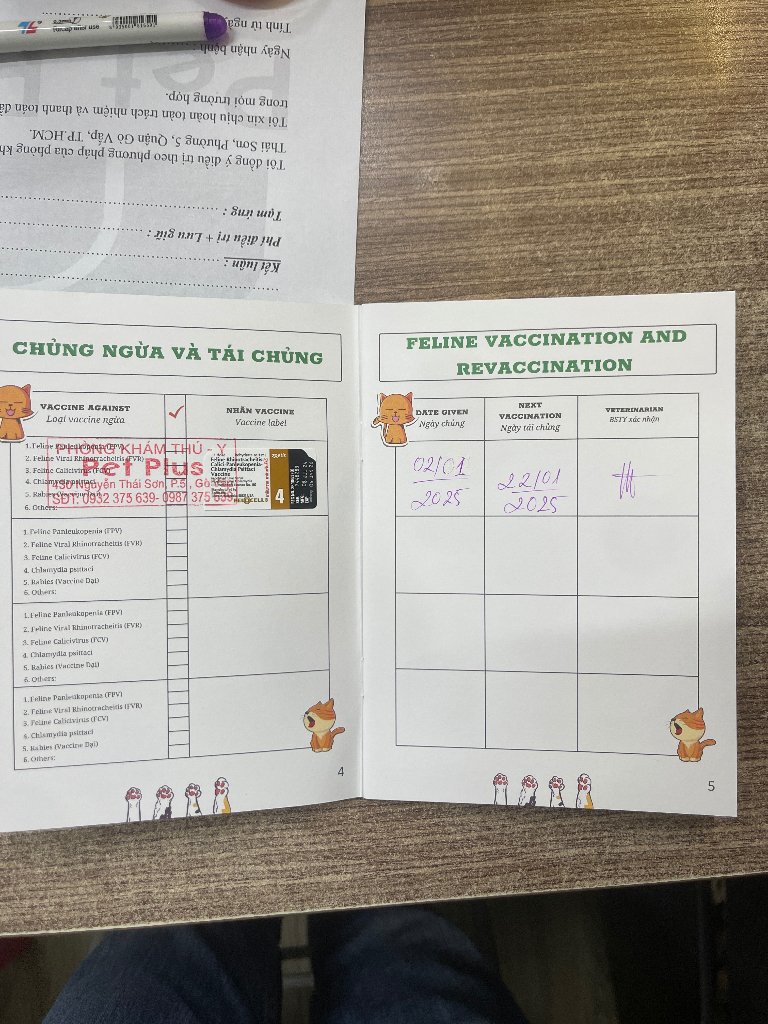 Tính từ ngày
Ngày nhận bệnh
trong mọi trường hợp.
Tôi xin chịu hoàn toàn trách nhiệm và thanh toán
Thái Sơn, Phường 5, Quận Gò Vấp, TP.HCM.
Tôi đồng ý điều trị theo phương pháp của phòng
Tạm ứng :
Phí điều trị + Lưu giữ :
Kết luận :
CHỦNG NGỪA VÀ TÁI CHỦNG
VACCINE AGAINST
Loại vaccine ngừa
NHÃN VACCINE
Vaccine label
1. Feline Panleukopenia (FPV)
2. Feline Viral Rhinotracheitis (FVR)
3. Feline Calicivirus (FCV)
4. Chlamydia psittaci
5. Rabies
6. Others:
PHÒNG KHÁM THÚ - Y
Pet Plus
430 Nguyễn Thái Sơn, P.5, Gò
SĐT: 0932 375 639- 0987 375 639
Feline Rhinotracheitis
Calici-Panleukopenia-
Chlamydia Psittaci
Vaccine
4
1. Feline Panleukopenia (FPV)
2. Feline Viral Rhinotracheitis (FVR)
3. Feline Calicivirus (FCV)
4. Chlamydia psittaci
5. Rabies (Vaccine Dại)
6. Others:
1. Feline Panleukopenia (FPV)
2. Feline Viral Rhinotracheitis (FVR)
3. Feline Calicivirus (FCV)
4. Chlamydia psittaci
5. Rabies (Vaccine Dại)
6. Others:
1. Feline Panleukopenia (FPV)
2. Feline Viral Rhinotracheitis (FVR)
3. Feline Calicivirus (FCV)
4. Chlamydia psittaci
5. Rabies (Vaccine Dại)
6. Others:
4
FELINE VACCINATION AND
REVACCINATION
DATE GIVEN
Ngày chủng
NEXT
VACCINATION
Ngày tái chủng
VETERINARIAN
BSTY xác nhận
02/01
2025
22/01
2025
5